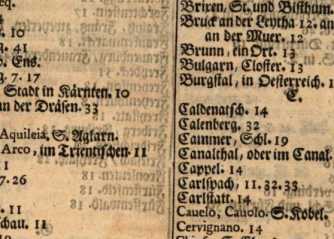 eq.
. 10
g. 41
b. Ens.
g. 7. 17
Stadt in Kärnten. 10
an der Dräsen. 33
Aquileia, S. Aglarn.
Arco, im Trientischen. 11
11
7. 26
. 11
chau. 11
Brixen, St. und Bisthum.
Bruck an der Leytha 12. an
an der Muer. 12
Brunn, ein Ort. 13
Bulgarn, Closter. 13
Burgstal, in Oesterreich. 1
C.
Caldenatsch. 14
Calenberg. 32
Cammer, Schl. 19
Canalthal, oder im Canal.
Cappel. 14
Carlspach, 11. 32. 33
Carlstatt. 14
Cauelo, Cauolo. S. Kobel.
Cervignano. 14